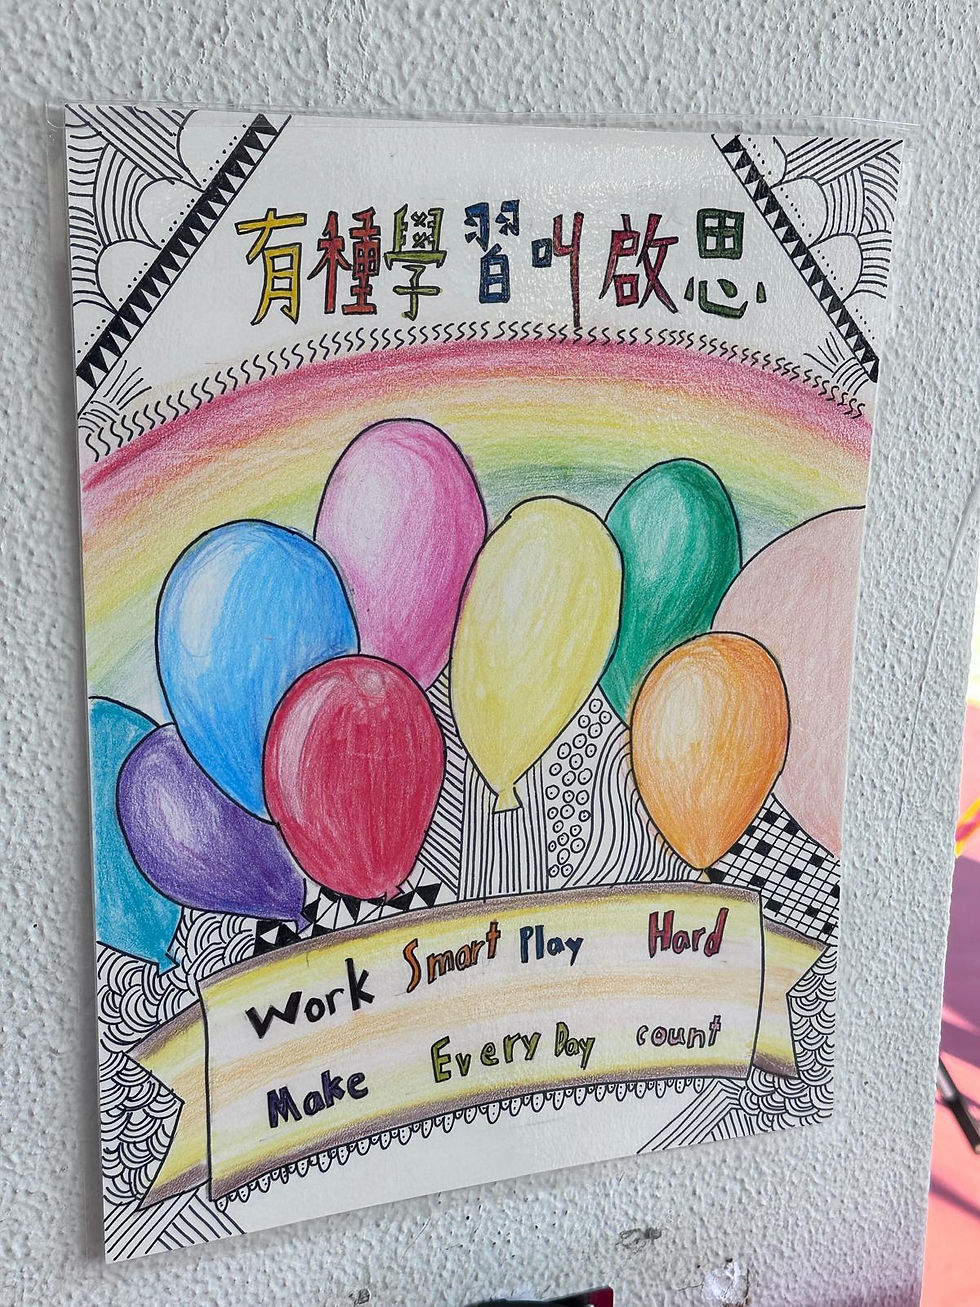 有種學習叫啟思
Work Smart Play Hard
Make Every Day count